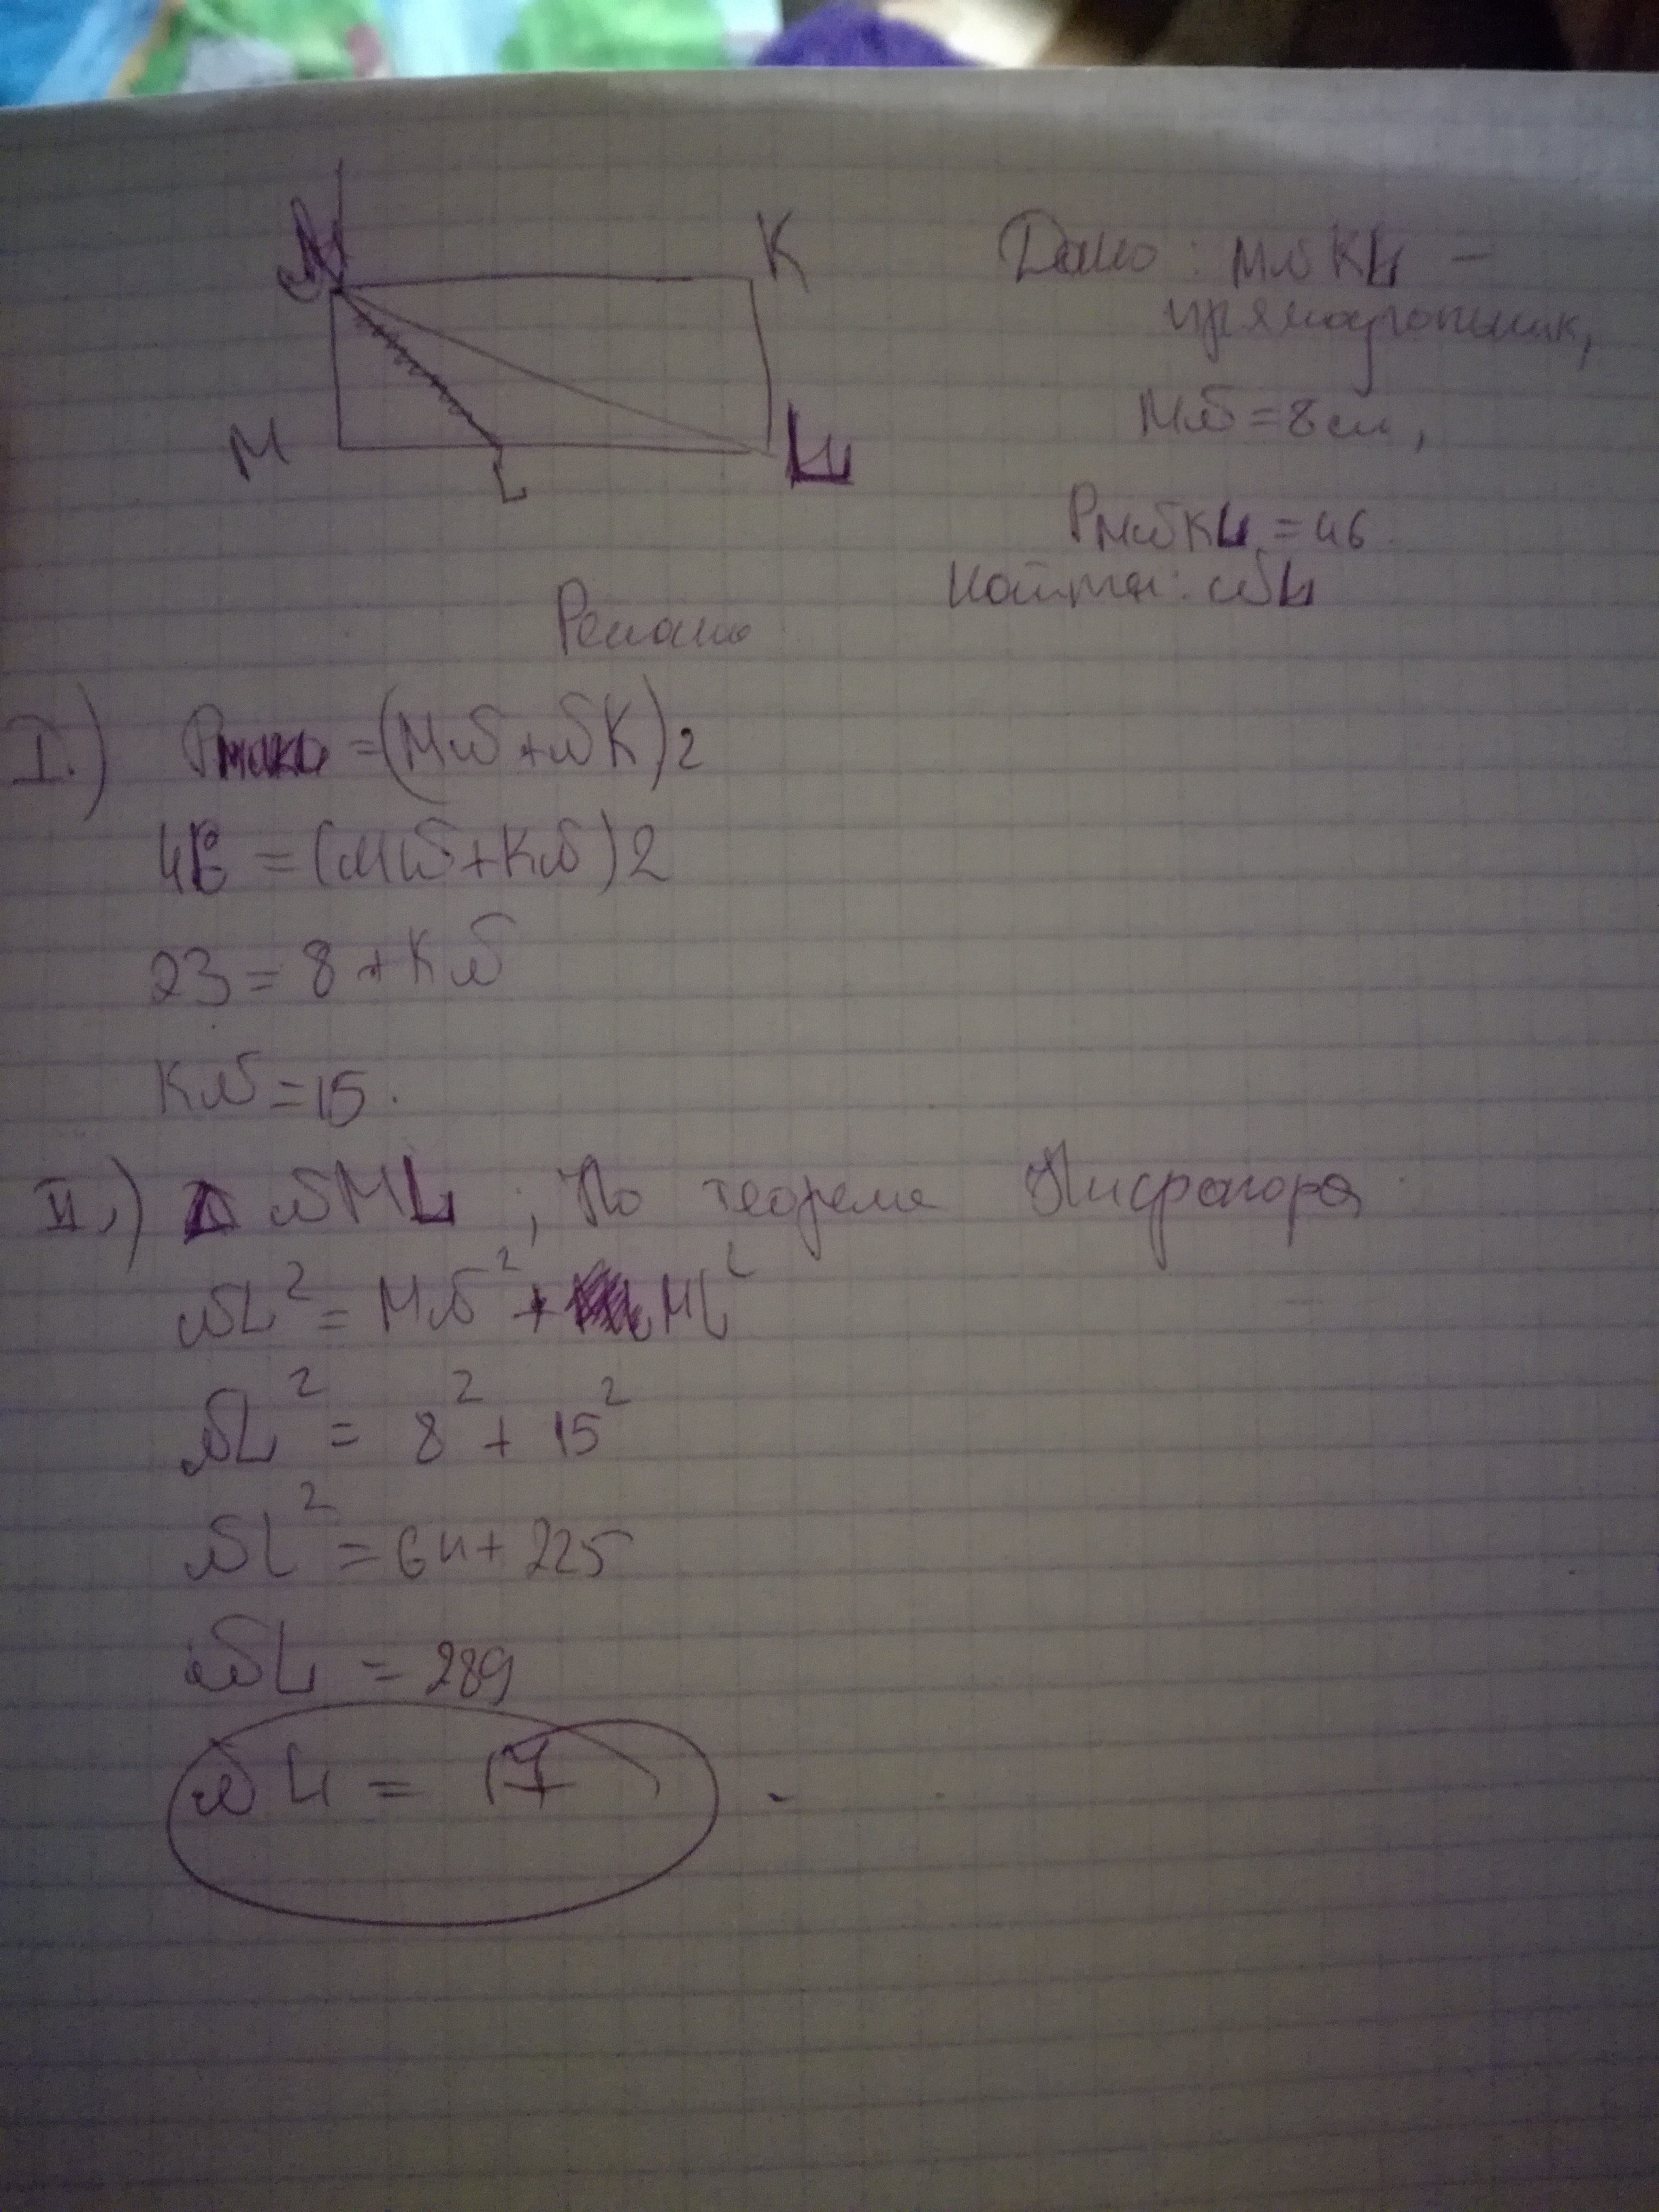 N K
M L
L
Дано: MNKL –
прямоугольник,
MN = 8 см,
PMNKL = 46.
Найти: NL
Решение
I.) PMNKL = (MN + NK)2
46 = (MN + KN)2
23 = 8 + KN
KN = 15.
II.) Δ NML ; По теореме Пифагора
NL² = MN² + ML²
NL² = 8² + 15²
NL² = 64 + 225
NL = 289
NL = 17